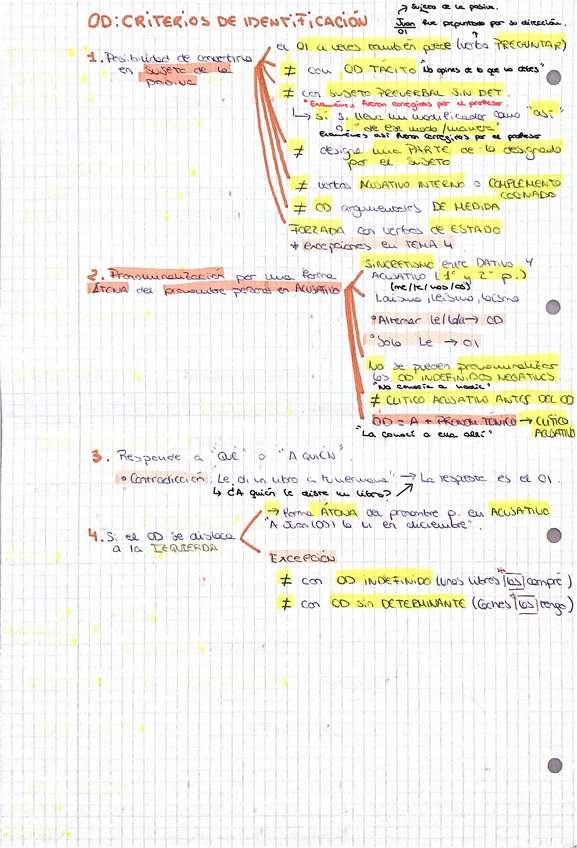 OD: CRITERIOS DE IDENTIFICACIÓN
→ Sujeto de la pasiva.
Juan fue preguntado por su dirección.
OI
1. Posibilidad de convertirlo
en sujeto de la
pasiva
el OI a veces también puede (verbo PREGUNTAR)
≠ con OD TÁCITO "No opines de lo que no debes"
≠ con SUJETO PREVERBAL SIN DET.
*Exámenes fueron corregidos por el profesor.
↳ sí S. lleva un modificador como "así"
o "de ese modo/manera"
Exámenes así fueron corregidos por el profesor
≠ designe una PARTE de lo designado
por el SUJETO
≠ verbos ACUSATIVO INTERNO o COMPLEMENTO
COGNADO
≠ OD argumentales DE MEDIDA
FORZADA con verbos de ESTADO
* excepciones en TEMA 4.
2. Pronominalización por una forma
ÁTONA del pronombre personal en ACUSATIVO
SINCRETISMO entre DATIVO y
ACUSATIVO (1ª y 2ª p.)
(me/te/nos/os)
Laísmo, leísmo, loísmo
• Alternar le/lo/la → OD
• Solo Le → OI
No se pueden pronominalizar
los OD INDEFINIDOS NEGATIVOS.
"No conocía a nadie"
≠ CLÍTICO ACUSATIVO ANTES DEL OD
OD = A + PRONOM. TÓNICO → CLÍTICO
ACUSATIVO
"La conocí a ella allí"
3. Responde a "QUÉ" o "A QUIÉN".
• Contradicción: Le di un libro a tu hermana" → La respuesta es el OI.
↳ ¿A quién le diste un libro?
4. Si el OD se disloca
a la IZQUIERDA
→ forma ÁTONA del pronombre p. en ACUSATIVO
"A Juan (OD) lo vi en diciembre".
EXCEPCIÓN
≠ con OD INDEFINIDO (unos libros *los compré)
≠ con OD sin DETERMINANTE (Coches *los tengo)